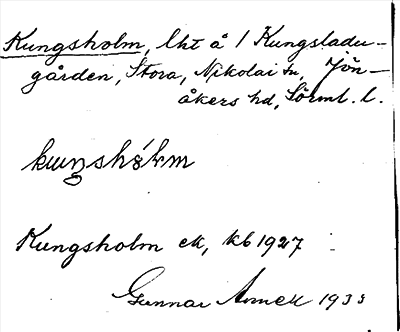 Kungsholm, lht å 1 Kungsladu-
gården, Stora, Nikolai sn, Jön-
åkers hd, Sörml. l.
kuŋshȯlm
Kungsholm ek, kb 1927
Gunnar Arnell 1933